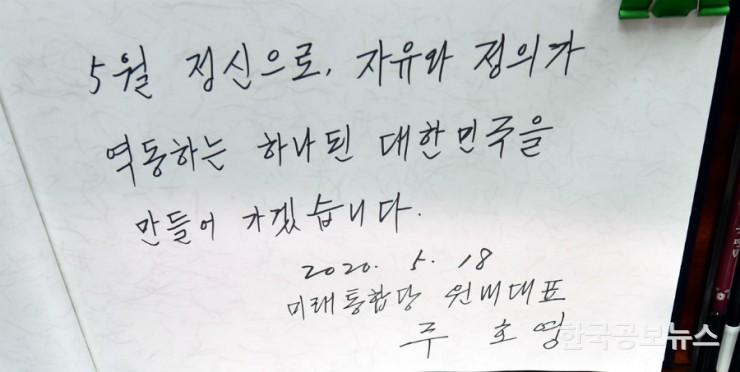 5월 정신으로, 자유와 정의가
역동하는 하나된 대한민국을
만들어 가겠습니다.
2020. 5. 18
미래통합당 원내대표
주 호 영
한국공보뉴스